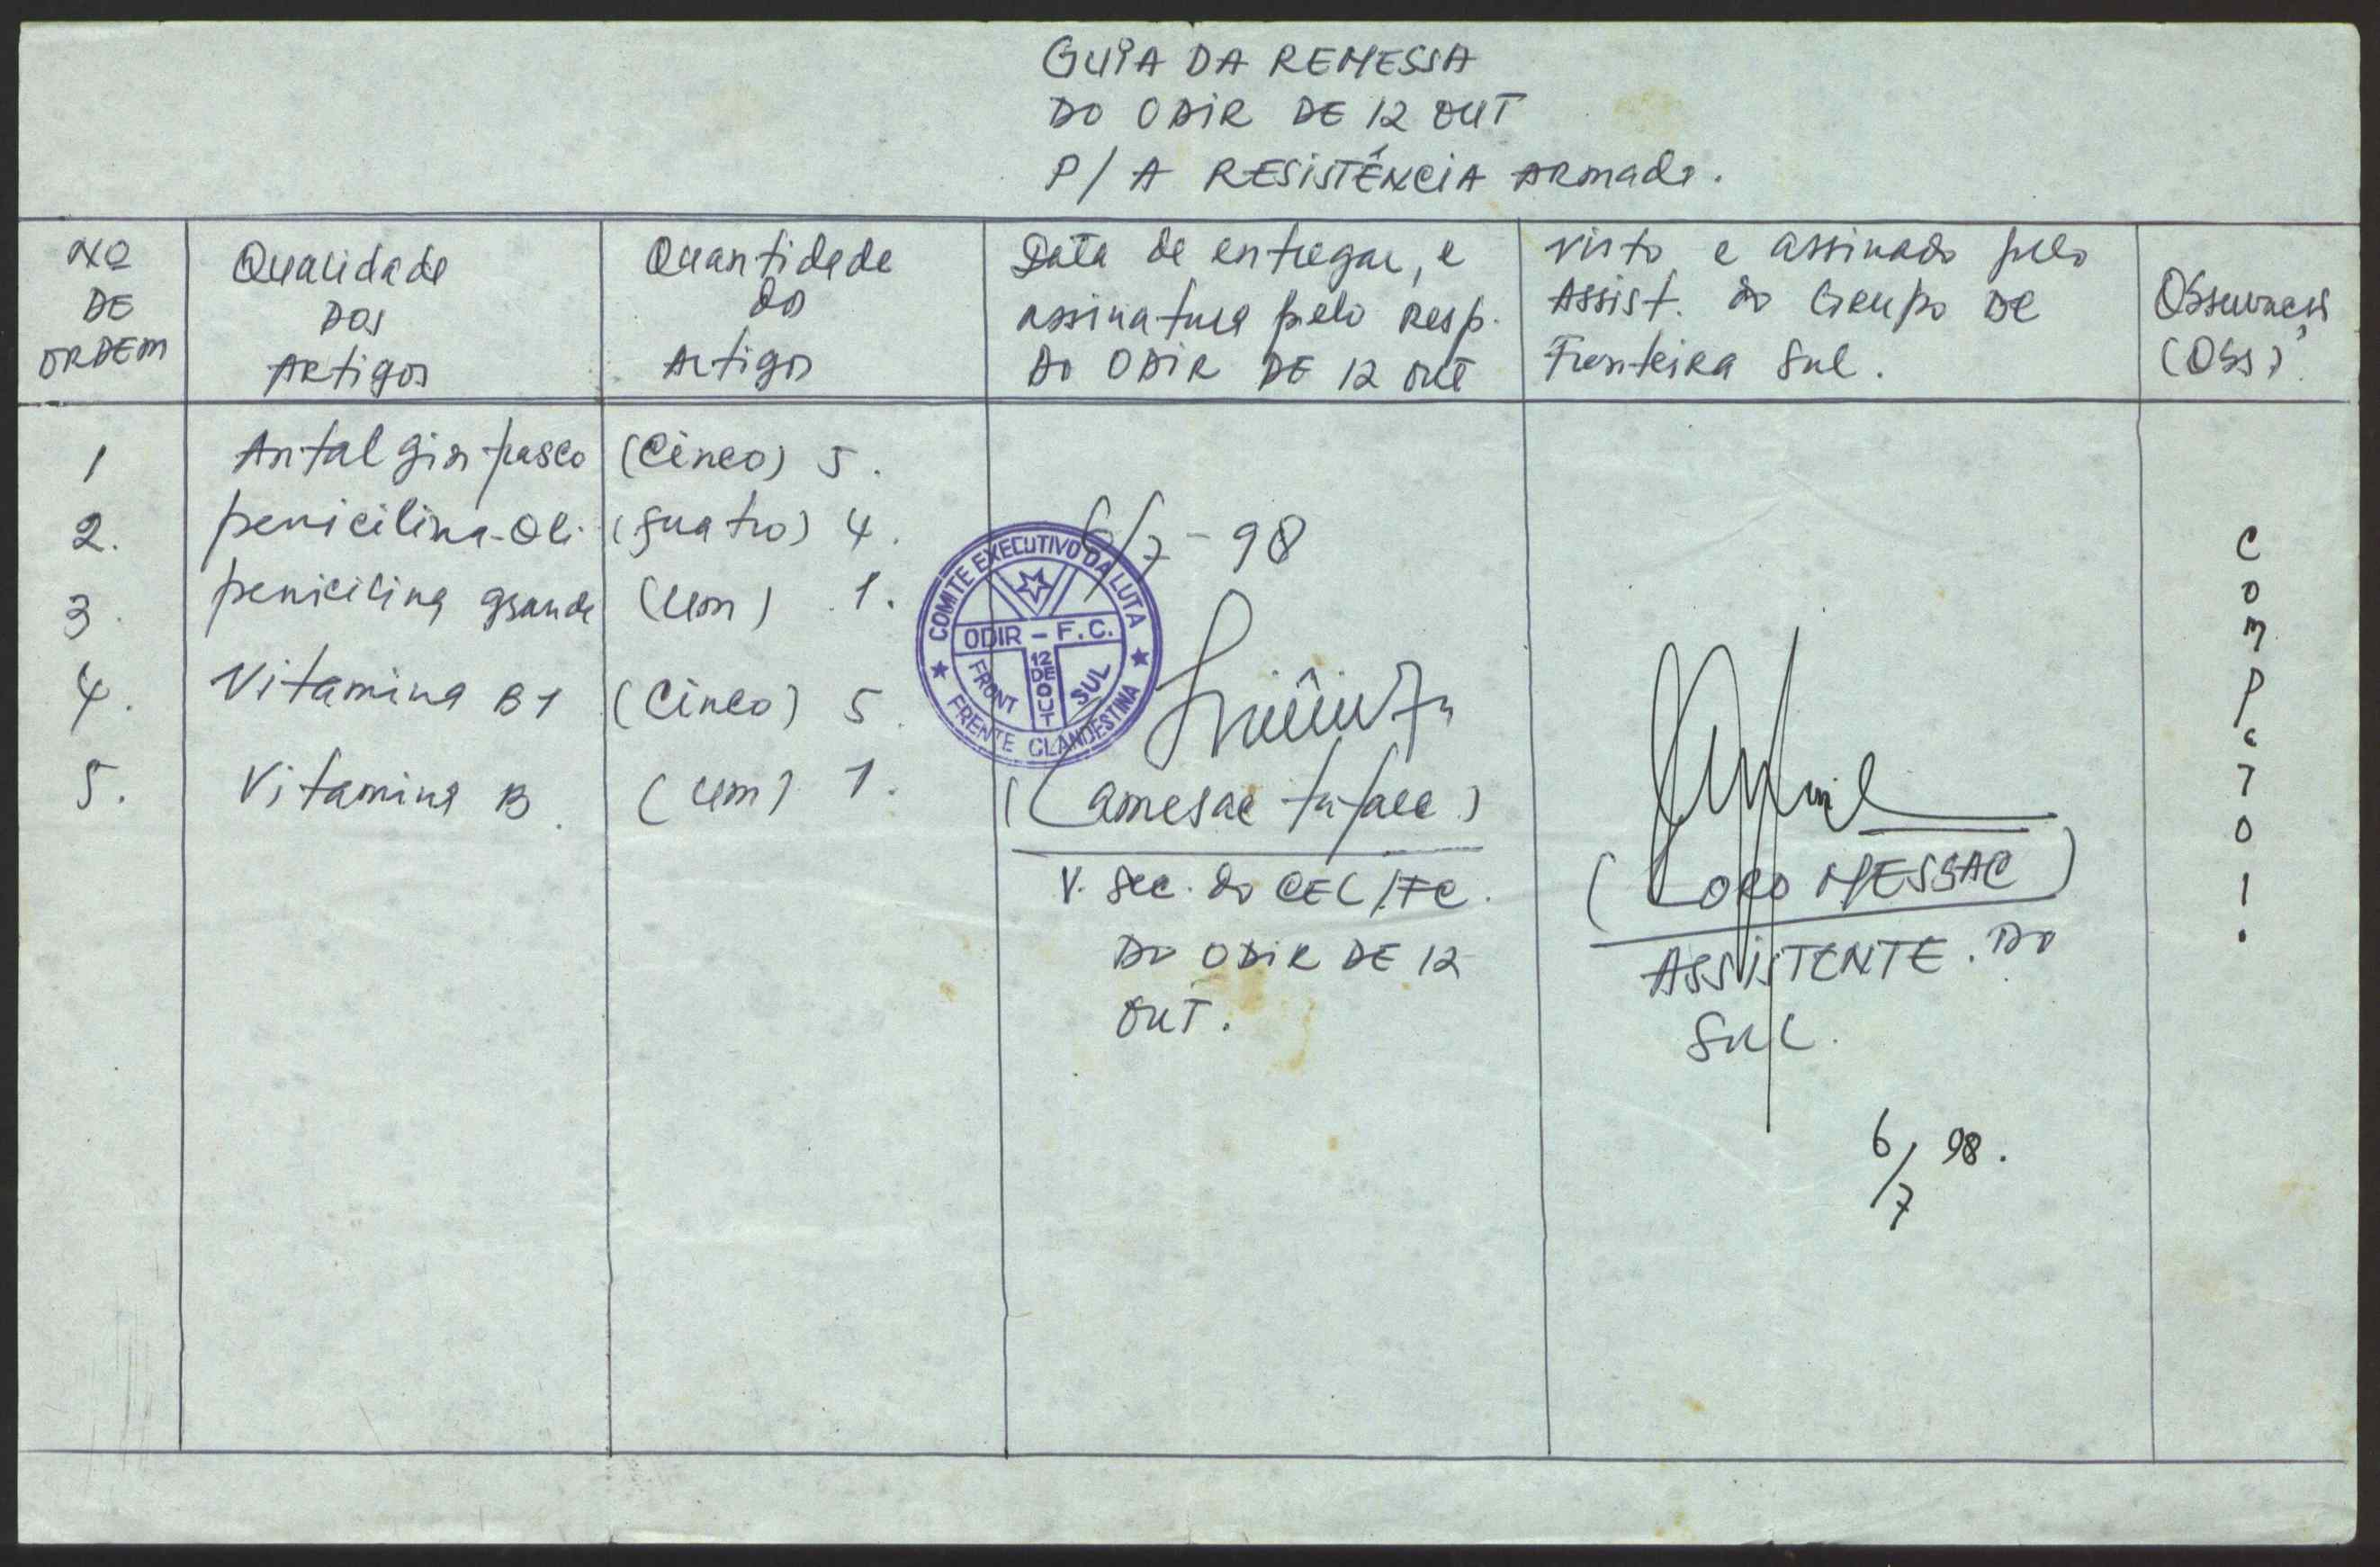 GUIA DA REMESSA
DO ODIR DE 12 OUT
P/ A RESISTÊNCIA ARMADA.
Nº
DE
ORDEM
Qualidade
DOS
Artigos
Quantidade
dos
Artigos
Data de entregar, e
assinatura pelo Resp.
DO ODIR DE 12 OUT
visto e assinado pelo
Assist. do Grupo DE
Fronteira Sul.
(Obs)
1 Antalgin (Cinco) 5.
2. penicilina-Oli (Quatro) 4.
3. penicilina grande (um) 1.
4. Vitamina B1 (Cinco) 5.
5. Vitamina B. (um) 1.
6/7-98
COMITE EXECUTIVO DA LUTA
ODIR - F.C.
FRONT
12
DE
OUT
SUL
FRENTE CLANDESTINA
V. Sec. do CEL/FC.
DO ODIR DE 12
OUT.
(LORO MESSAC)
ASSISTENTE. DO
SUL.
6/7 98.